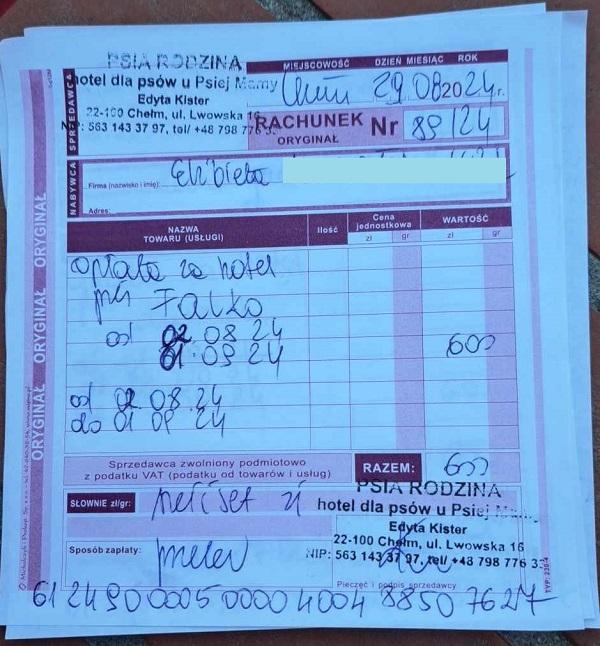 PSIA RODZINA
hotel dla psów u Psiej Mamy
Edyta Kister
22-100 Chełm, ul. Lwowska 16
NIP: 563 143 37 97, tel/ +48 798 776 33
MIEJSCOWOŚĆ DZIEŃ MIESIĄC ROK
29.08 2024 r.
RACHUNEK Nr 89/24
ORYGINAŁ
SPRZEDAWCA
NABYWCA
Firma (nazwisko i imię): Elżbieta
Adres:
ORYGINAŁ ORYGINAŁ ORYGINAŁ
NAZWA TOWARU (USŁUGI) Ilość Cena jednostkowa WARTOŚĆ
zł gr zł gr
opłata za hotel
psa Falko
od 02.08.24
01.09.24 600
od 02.08.24
do 01.09.24
Sprzedawca zwolniony podmiotowo
z podatku VAT (podatku od towarów i usług)
RAZEM: 600
SŁOWNIE zł/gr: zł
PSIA RODZINA
hotel dla psów u Psiej Mamy
Edyta Kister
22-100 Chełm, ul. Lwowska 16
NIP: 563 143 37 97, tel/ +48 798 776 33
Sposób zapłaty: przelew
Pieczęć i podpis sprzedawcy
61 2490 0005 0000 4004 8850 7627